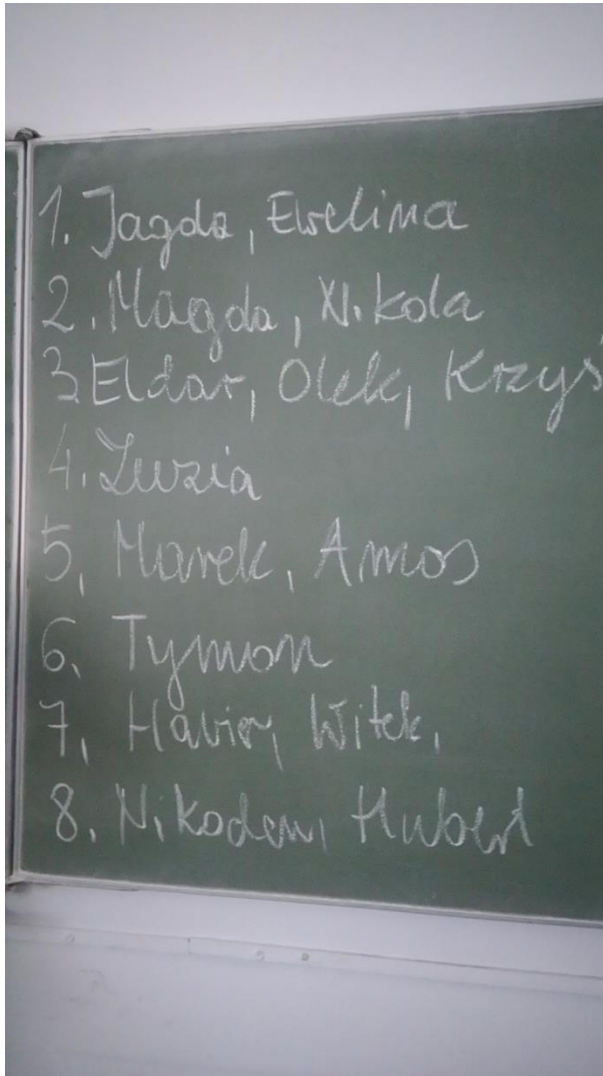 1. Jagda, Ewelina
2. Magda, Nikola
3 Eldar, Olek, Krzyś
4. Zuzia
5, Marek, Amos
6, Tymon
7, Witek,
8. Nikodem, Hubert